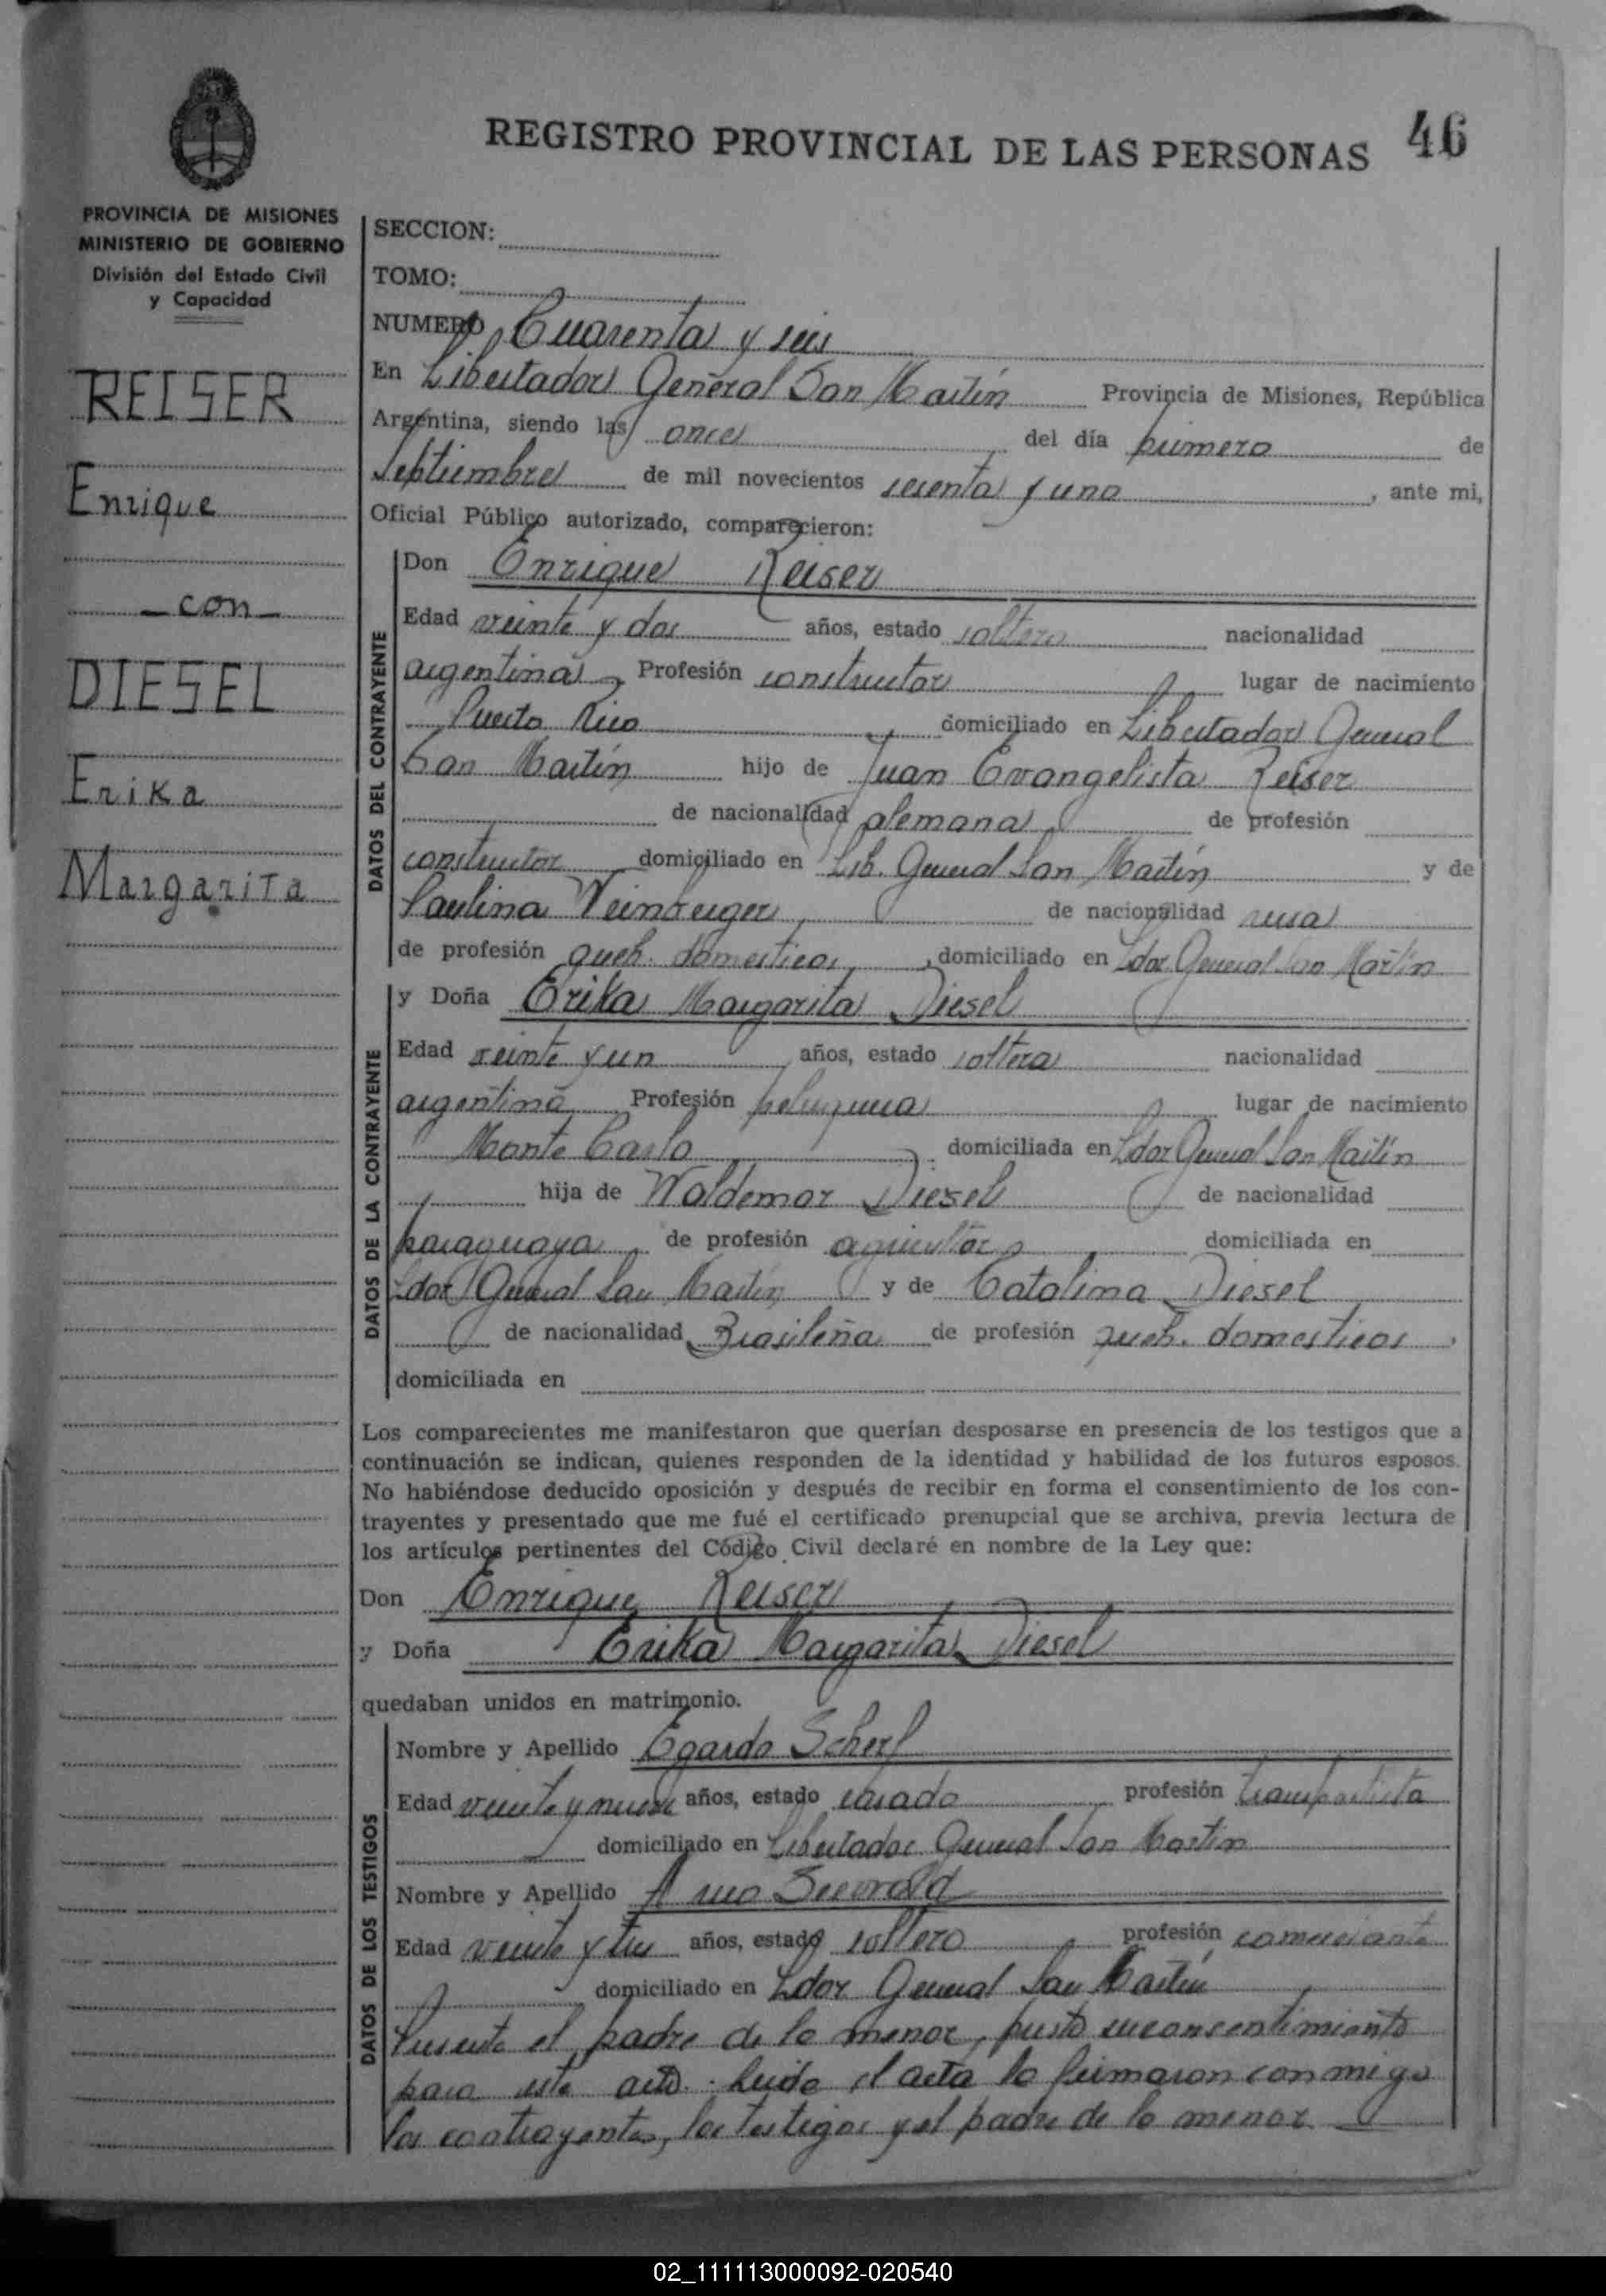 REGISTRO PROVINCIAL DE LAS PERSONAS 46
PROVINCIA DE MISIONES
MINISTERIO DE GOBIERNO
División del Estado Civil
y Capacidad
REISER
Enrique
con
DIESEL
Erika
Margarita
SECCION:
TOMO:
NUMERO Cuarenta y seis
En Libertador General San Martín Provincia de Misiones, República
Argentina, siendo las once del día primero de
Septiembre de mil novecientos sesenta y uno, ante mi,
Oficial Público autorizado, comparecieron:
DATOS DEL CONTRAYENTE
Don Enrique Reiser
Edad veinte y dos años, estado soltero nacionalidad
argentina, Profesión constructor lugar de nacimiento
Puerto Rico domiciliado en Libertador General
San Martín hijo de Juan Evangelista Reiser
de nacionalidad alemana de profesión
constructor domiciliado en Lib. General San Martín y de
Paulina Weinberger de nacionalidad rusa
de profesión queh. domesticos, domiciliado en Ldor. General San Martín
DATOS DE LA CONTRAYENTE
y Doña Erika Margarita Diesel
Edad veinte y un años, estado soltera nacionalidad
argentina Profesión peluquera lugar de nacimiento
Monte Carlo domiciliada en Ldor General San Martín
hija de Waldemar Diesel de nacionalidad
paraguaya de profesión agricultor domiciliada en
Ldor General San Martín y de Catalina Diesel
de nacionalidad Brasileña de profesión queh. domesticos,
domiciliada en
Los comparecientes me manifestaron que querían desposarse en presencia de los testigos que a
continuación se indican, quienes responden de la identidad y habilidad de los futuros esposos.
No habiéndose deducido oposición y después de recibir en forma el consentimiento de los con-
trayentes y presentado que me fué el certificado prenupcial que se archiva, previa lectura de
los artículos pertinentes del Código Civil declaré en nombre de la Ley que:
Don Enrique Reiser
y Doña Erika Margarita Diesel
quedaban unidos en matrimonio.
DATOS DE LOS TESTIGOS
Nombre y Apellido Egardo Scherf
Edad veinte y nueve años, estado casado profesión transportista
domiciliado en Libertador General San Martín
Nombre y Apellido
Edad veinte y tres años, estado soltero profesión comerciante
domiciliado en Ldor General San Martín
Presente el padre de la menor, presto su consentimiento
para este acto. Leída el acta la firmaron conmigo
los contrayentes, los testigos y el padre de la menor
02_111113000092-020540